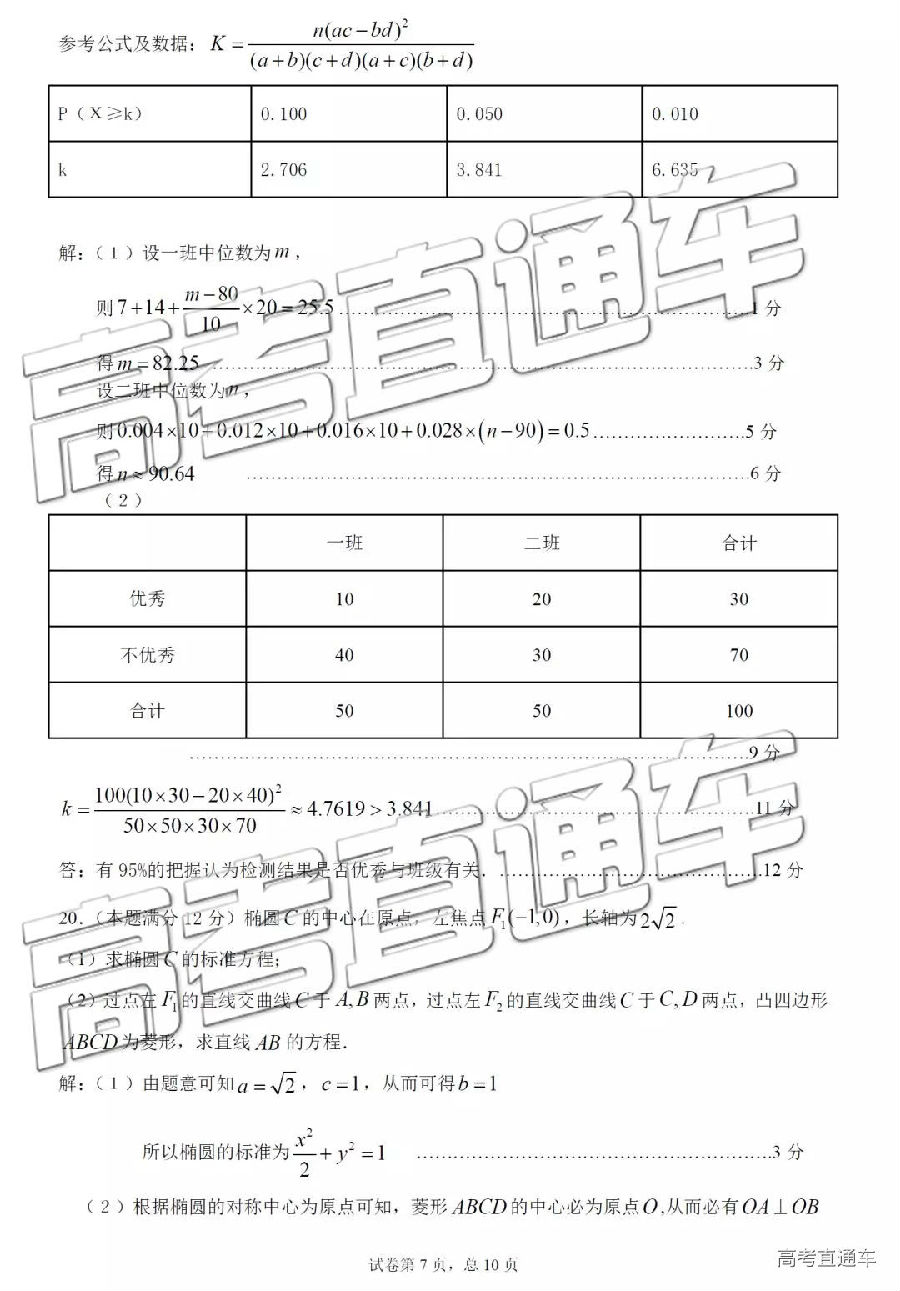 参考公式及数据：K = n(ac－bd)² / (a+b)(c+d)(a+c)(b+d)
P（X≥k） 0.100 0.050 0.010
k 2.706 3.841 6.635
解：（1）设一班中位数为m，
则7+14+ (m－80)/10 ×20=25.5……………………1分
得m=82.25……………………3分
设二班中位数为n，
则0.004×10+0.012×10+0.016×10+0.028×(n－90)=0.5……………………5分
得n≈90.64 ……………………6分
（2）
一班 二班 合计
优秀 10 20 30
不优秀 40 30 70
合计 50 50 100
……………………9分
k = 100(10×30－20×40)² / 50×50×30×70 ≈4.7619>3.841……………………11分
答：有95%的把握认为检测结果是否优秀与班级有关.……………………12分
20.（本题满分12分）椭圆C的中心在原点，左焦点F₁(－1,0)，长轴为2√2.
（1）求椭圆C的标准方程；
（2）过点左F₁的直线交曲线C于A,B两点，过点左F₂的直线交曲线C于C,D两点，凸四边形
ABCD为菱形，求直线AB的方程.
解：（1）由题意可知a=√2，c=1，从而可得b=1
所以椭圆的标准为 x²/2 + y² =1 ……………………3分
（2）根据椭圆的对称中心为原点可知，菱形ABCD的中心必为原点O,从而必有OA⊥OB
试卷第7页，总10页
高考直通车
高考直通车
高考直通车